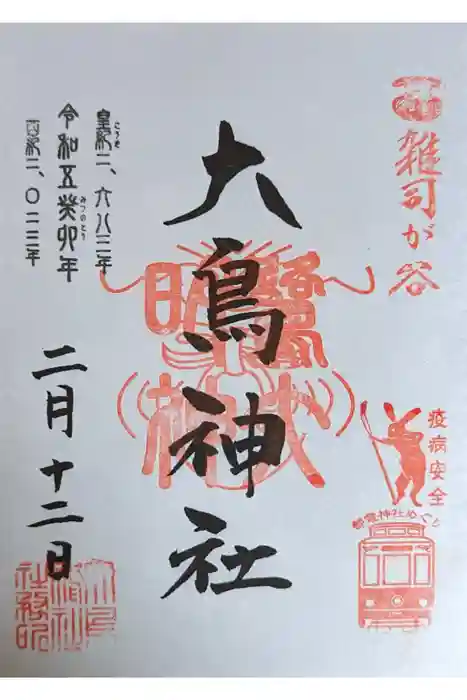 雑司が谷
疫病安全
都電神社めぐり
大鳥神社
皇紀二、六八三年
こうき
令和五癸卯年
みつのとう
西紀二、〇二三年
二月十二日